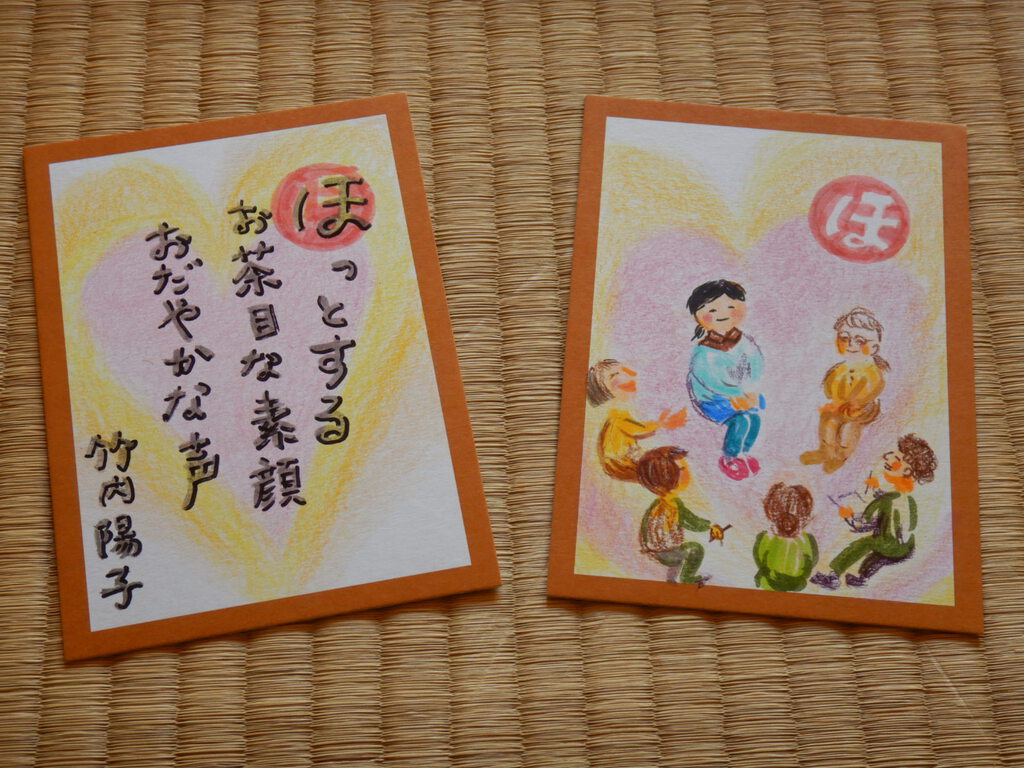 ほっとする
お茶目な素顔
おだやかな声
竹内陽子
ほ